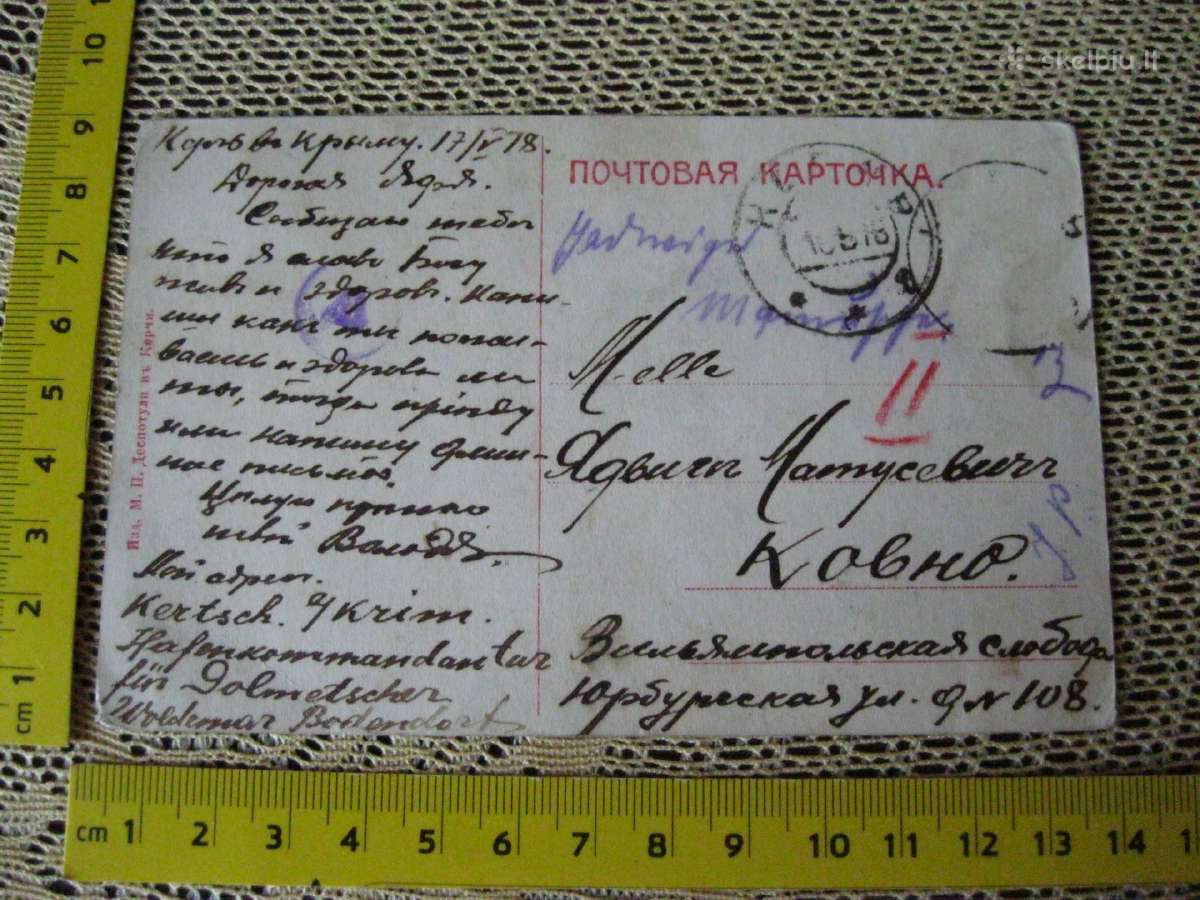 skelbiu.lt
Керчь въ Крыму. 17/V 18.
Дорогая Ядзя.
Сообщаю тебѣ
что я слава Богу
живъ и здоровъ. Напи-
ши какъ ты пожи-
ваешь и здорова ли
ты, тогда пріѣду
или напишу
ное письмо.
Цѣлую крѣпко
твой Володя.
Мой адрес.
Kertsch. a/Krim.
Hafenkommandantur
für Dolmetscher
Woldemar Bodendorf
Изд. М. П. Деспотули въ Керчи.
ПОЧТОВАЯ КАРТОЧКА.
Hedwige
18
II
M-elle
Ядвигѣ Матусевичъ
Ковно.
Вильямпольская слобода
Юрбургская ул. д N 108.
cm 1 2 3 4 5 6 7 8 9 10
cm 1 2 3 4 5 6 7 8 9 10 11 12 13 14 1